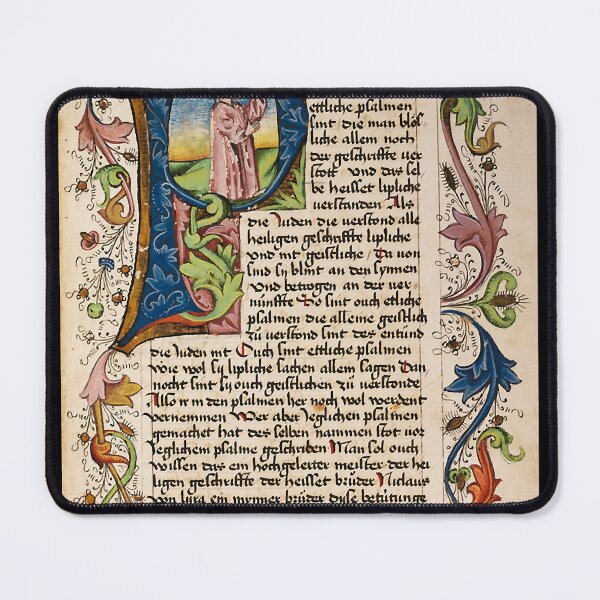 ettliche psalmen
sint die man blös
liche allem noch
der geschriffte ver
stott vnd das sel
be heisset lipliche
verstanden Als
die Juden die verstond alle
heiligen geschriffte lipliche
vnd nit geistliche / Da von
sind sy blint an den synnen
vnd betrogen an der ver
nunffte Do sint ouch etliche
psalmen die alleine geistlich
zu verstond sint des entünd
die Juden nit Ouch sint ettliche psalmen
wie wol sy lipliche sachen allem sagen Dan
nocht sint sy ouch geistlichen zu verstonde
Also ir in den psalmen her noch wol werdent
vernemmen Wer aber yeglichen psalmen
gemachet hat des selben nammen stot vor
yeglichem psalme geschriben Man sol ouch
wissen das ein hochgeleiter meister der hei
ligen geschriffte der heisset brüder Niclaus
von lira ein mynner brüder dyse betütunge